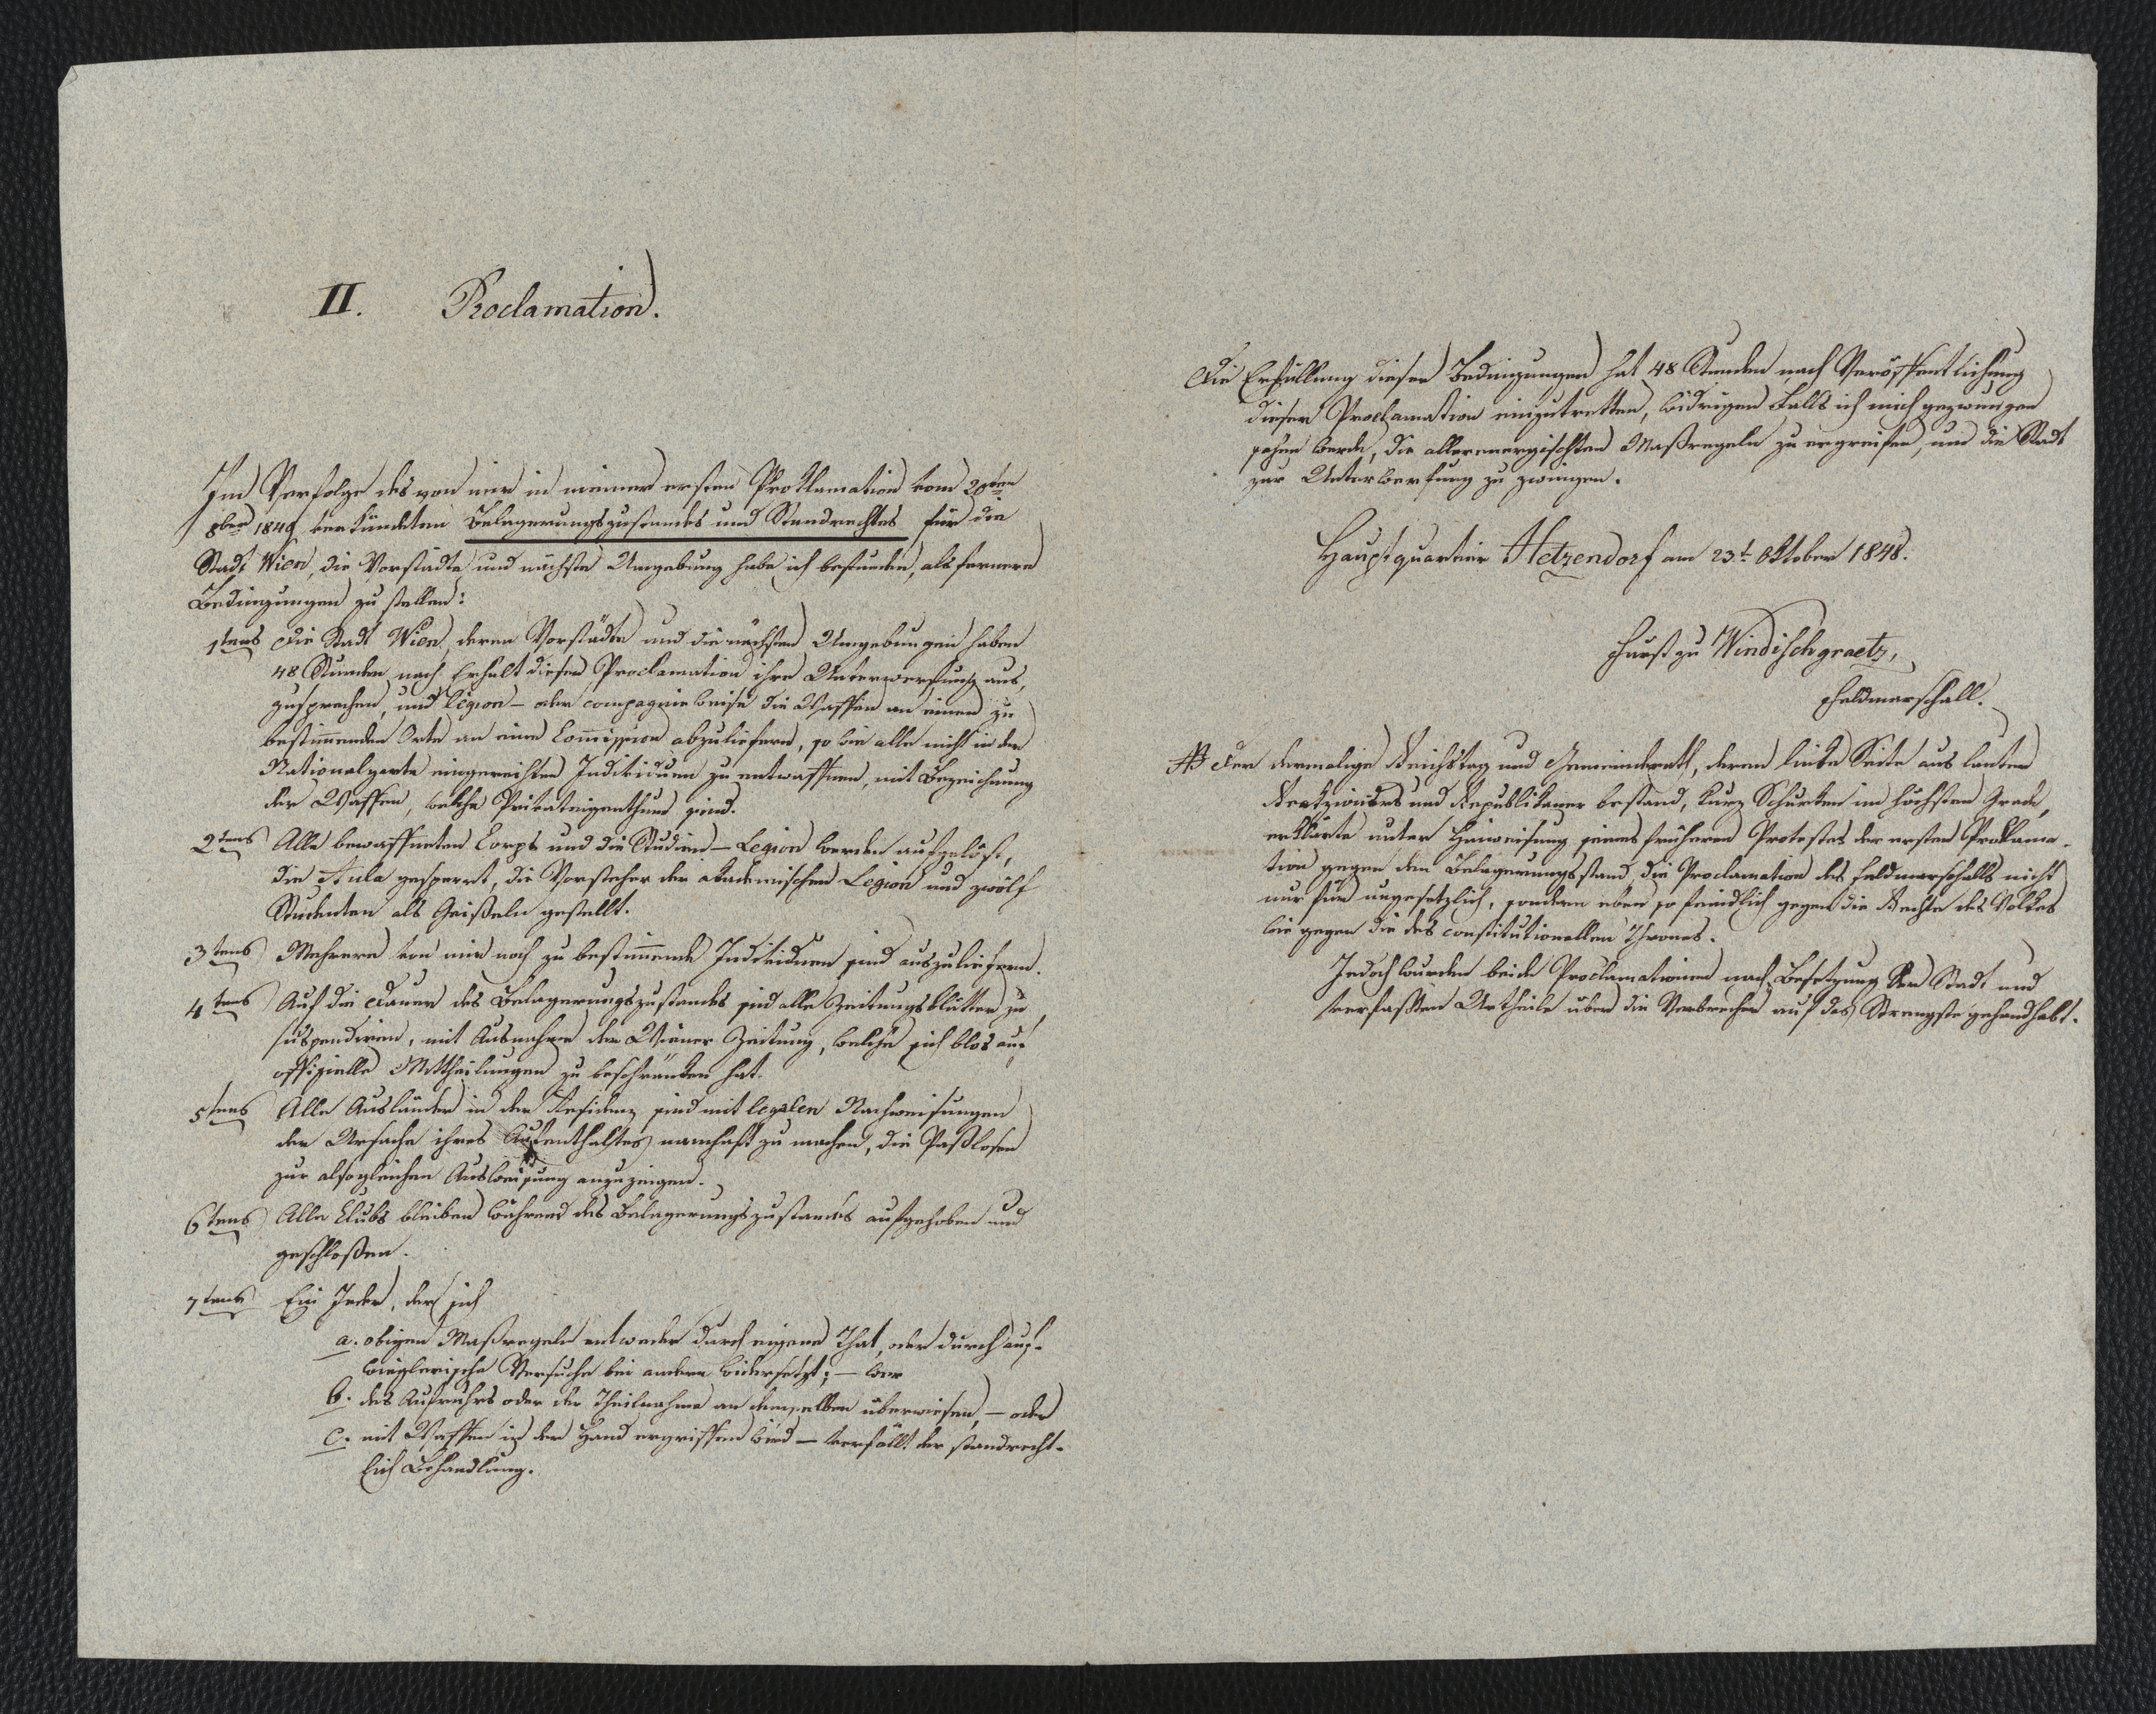 II. Proclamation.
Im Verfolge des von mir in meiner ersten Proklamation vom 20ten
8ber 1848 verkündeten Belagerungszustandes und Standrechtes für die
Stadt Wien, die Vorstädte und nächste Umgebung habe ich befunden, als fernere
Bedingungen zu stellen:
1tens Die Stadt Wien, deren Vorstädte und die nächsten Umgebungen haben
48 Stunden nach Erhalt dieser Proclamation ihre Unterwerfung aus,
zusprechen, und Legion- oder compagnieweise die Waffen an einen zu
bestimmenden Orte an eine Commission abzuliefern, so wie alle nicht in der
Nationalgarde eingereihten Individuen zu entwaffnen, mit Bezeichnung
der Waffen, welche Privateigenthum sind.
2tens Alle bewaffneten Corps und die Studien-Legion werden aufgelöst,
die Aula gesperrt, die Vorsteher der akademischen Legion und zwölf
Studenten als Geißeln gestellt.
3tens Mehrere von mir noch zu bestimmende Individuen sind auszuliefern.
4tens Auf die Dauer des Belagerungszustandes sind alle Zeitungsblätter zu
suspendiren, mit Ausnahme der Wiener Zeitung, welche sich blos auf
offizielle Mittheilungen zu beschränken hat.
5tens Alle Ausländer in der Residenz sind mit legalen Nachweisungen
der Ursache ihres Aufenthaltes namhaft zu machen, die Paßlosen
zur alsogleichen Ausweisung anzuzeigen.
6tens Alle Clubs bleiben während des Belagerungszustandes aufgehoben und
geschloßen.
7tens Ein Jeder, der sich
a. obigen Maßregeln entweder durch eigene That, oder durch auf-
wieglerische Versuche bei andern widersetzt; – wer
b. des Aufruhrs oder der Theilnahme an demselben überwiesen, – oder
c. mit Waffen in der Hand ergriffen wird – verfällt der standrecht-
lich Behandlung.
Die Erfüllung dieser Bedingungen hat 48 Stunden nach Veröffentlichung
dieser Proclamation einzutretten, widrigen Falls ich mich gezwungen
sehen werde, die allerenergischsten Maßregeln zu ergreifen, um die Stadt
zur Unterwerfung zu zwingen.
Hauptquartier Hetzendorf am 23t. Oktober 1848.
Fürst zu Windischgraetz,
Feldmarschall.
NB Der dermalige Reichstag und Gemeinderath, deren linke Seite aus lauter
und Republikaner bestand, kurz Schurken im höchsten Grade,
erklärte unter Hinweisung seines früheren Protestes der ersten Proklama-
tion gegen den Belagerungsstand, die Proclamation des Feldmarschalls nicht
nur für ungesetzlich, sondern eben so feindlich gegen die Rechte des Volkes
wie gegen die des constitutionellen Thrones.
Jedoch wurden beide Proclamationen nach Besetzung der Stadt und
verfaßten Urtheile über die Verbrecher auf das Strengste gehandhabt.